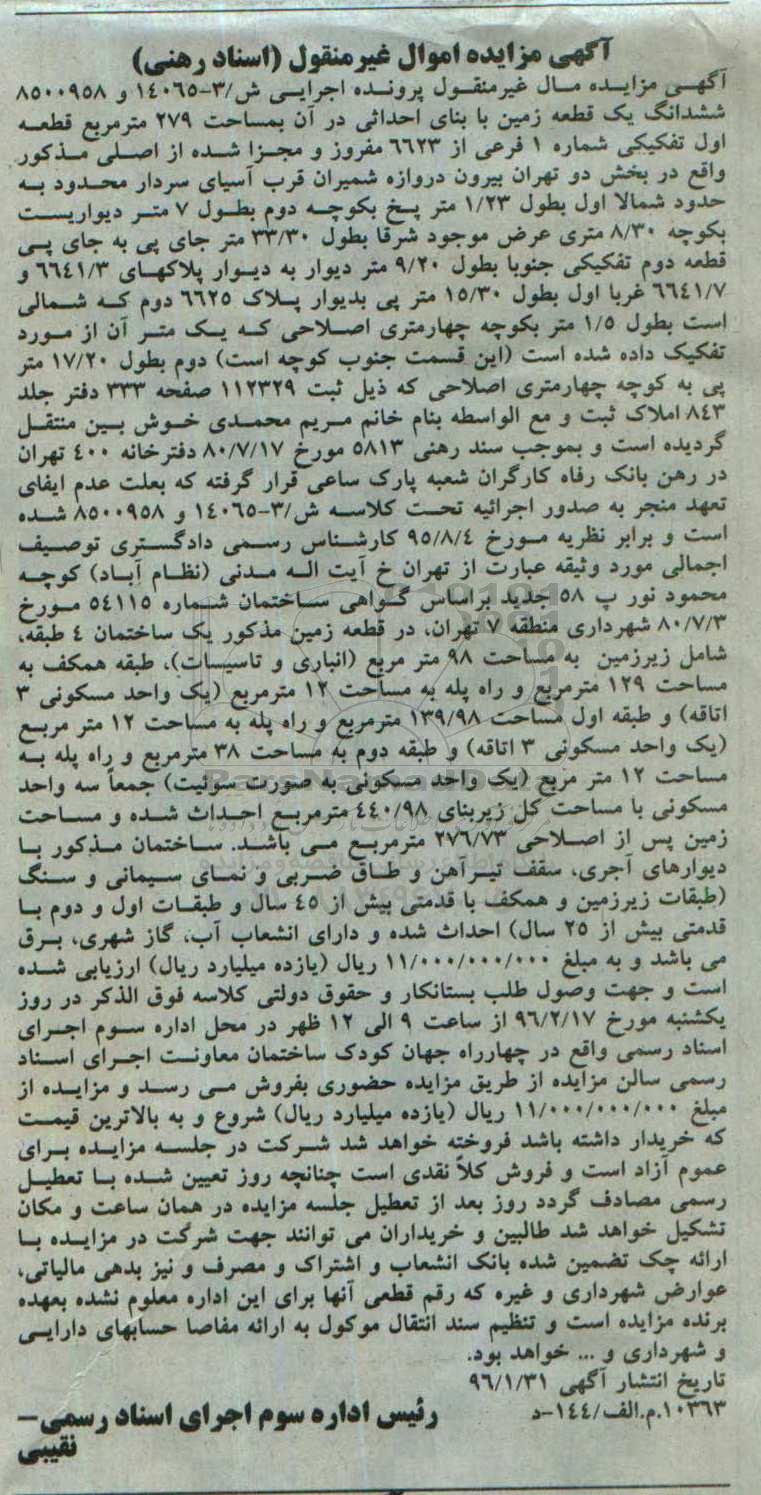 آگهی مزایده اموال غیرمنقول (اسناد رهنی)
آگهـی مزایـده مـال غیرمنقـول پرونـده اجرایـی ش/۳-۱۴۰۶۵ و ۸۵۰۰۹۵۸
ششدانگ یک قطعه زمین با بنای احداثی در آن بمساحت ۲۷۹ مترمربع قطعـه
اول تفکیکی شماره ۱ فرعی از ۶۶۲۳ مفروز و مجـزا شـده از اصـلی مـذکور
واقع در بخش دو تهران بیرون دروازه شمیران قرب آسیای سردار محـدود بـه
حدود شمالا اول بطول ۱/۲۳ متر پـخ بکوچـه دوم بطـول ۷ متـر دیواریـست
بکوچه ۸/۳۰ متری عرض موجود شرقا بطول ۳۳/۳۰ متر جای پی به جای پـی
قطعه دوم تفکیکی جنوبا بطول ۹/۲۰ متر دیوار به دیـوار پلاکهـای ۶۶۴۱/۳ و
۶۶۴۱/۷ غربا اول بطول ۱۵/۳۰ متر پی بدیوار پـلاک ۶۶۲۵ دوم کـه شـمالی
است بطول ۱/۵ متر بکوچه چهارمتری اصـلاحی کـه یـک متـر آن از مـورد
تفکیک داده شده است (این قسمت جنوب کوچه است) دوم بطول ۱۷/۲۰ متر
پی به کوچه چهارمتری اصلاحی که ذیل ثبت ۱۱۲۳۲۹ صفحه ۳۳۳ دفتر جلد
۸۴۳ املاک ثبت و مع الواسطه بنام خانم مـریم محمـدی خـوش بـین منتقـل
گردیده است و بموجب سند رهنی ۵۸۱۳ مورخ ۸۰/۷/۱۷ دفترخانه ۴۰۰ تهران
در رهن بانک رفاه کارگران شعبه پارک ساعی قرار گرفته که بعلت عدم ایفای
تعهد منجر به صدور اجرائیه تحـت کلاسـه ش/۳-۱۴۰۶۵ و ۸۵۰۰۹۵۸ شـده
است و برابر نظریه مـورخ ۹۵/۸/۴ کارشـناس رسـمی دادگـستری توصـیف
اجمالی مورد وثیقه عبارت از تهران خ آیت الـه مـدنی (نظـام آبـاد) کوچـه
محمود نور پ ۵۸ جدید براساس گـواهی سـاختمان شـماره ۵۴۱۱۵ مـورخ
۸۰/۷/۳ شهرداری منطقه ۷ تهران، در قطعه زمین مذکور یک ساختمان ۴ طبقه،
شامل زیرزمین به مساحت ۹۸ متر مربع (انباری و تاسیسات)، طبقه همکف به
مساحت ۱۲۹ مترمربع و راه پله به مساحت ۱۲ مترمربع (یک واحد مسکونی ۳
اتاقه) و طبقه اول مساحت ۱۳۹/۹۸ مترمربع و راه پله به مساحت ۱۲ متر مربـع
(یک واحد مسکونی ۳ اتاقه) و طبقه دوم به مساحت ۳۸ مترمربع و راه پله بـه
مساحت ۱۲ متر مربع (یک واحد مسکونی به صورت سوئیت) جمعاً سه واحد
مسکونی با مساحت کل زیربنای ۴۴۰/۹۸ مترمربـع احـداث شـده و مـساحت
زمین پس از اصـلاحی ۲۷۶/۷۳ مترمربـع مـی باشـد. سـاختمان مـذکور بـا
دیوارهای آجری، سقف تیـرآهن و طـاق ضـربی و نمـای سـیمانی و سـنگ
(طبقات زیرزمین و همکف با قدمتی بیش از ۴۵ سال و طبقـات اول و دوم بـا
قدمتی بیش از ۲۵ سال) احداث شده و دارای انشعاب آب، گاز شهری، بـرق
می باشد و به مبلغ ۱۱/۰۰۰/۰۰۰/۰۰۰ ریال (یازده میلیارد ریال) ارزیابی شـده
است و جهت وصول طلب بستانکار و حقوق دولتی کلاسه فوق الذکر در روز
یکشنبه مورخ ۹۶/۲/۱۷ از ساعت ۹ الی ۱۲ ظهر در محل اداره سـوم اجـرای
اسناد رسمی واقع در چهارراه جهان کودک ساختمان معاونـت اجـرای اسـناد
رسمی سالن مزایده از طریق مزایده حضوری بفروش مـی رسـد و مزایـده از
مبلغ ۱۱/۰۰۰/۰۰۰/۰۰۰ ریال (یازده میلیارد ریال) شروع و به بالاترین قیمـت
که خریدار داشته باشد فروخته خواهد شد شـرکت در جلـسه مزایـده بـرای
عموم آزاد است و فروش کلاً نقدی است چنانچه روز تعیین شـده بـا تعطیـل
رسمی مصادف گردد روز بعد از تعطیل جلسه مزایده در همان ساعت و مکان
تشکیل خواهد شد طالبین و خریداران می توانند جهت شرکت در مزایـده بـا
ارائه چک تضمین شده بانک انشعاب و اشتراک و مصرف و نیز بدهی مالیاتی،
عوارض شهرداری و غیره که رقم قطعی آنها برای این اداره معلوم نشده بعهده
برنده مزایده است و تنظیم سند انتقال موکول به ارائه مفاصا حسابهای دارایـی
و شهرداری و ... خواهد بود.
تاریخ انتشار آگهی ۹۶/۱/۳۱
۱۰۳۶۳.م.الف/۱۴۴-د
رئیس اداره سوم اجرای اسناد رسمی–
نقیبی